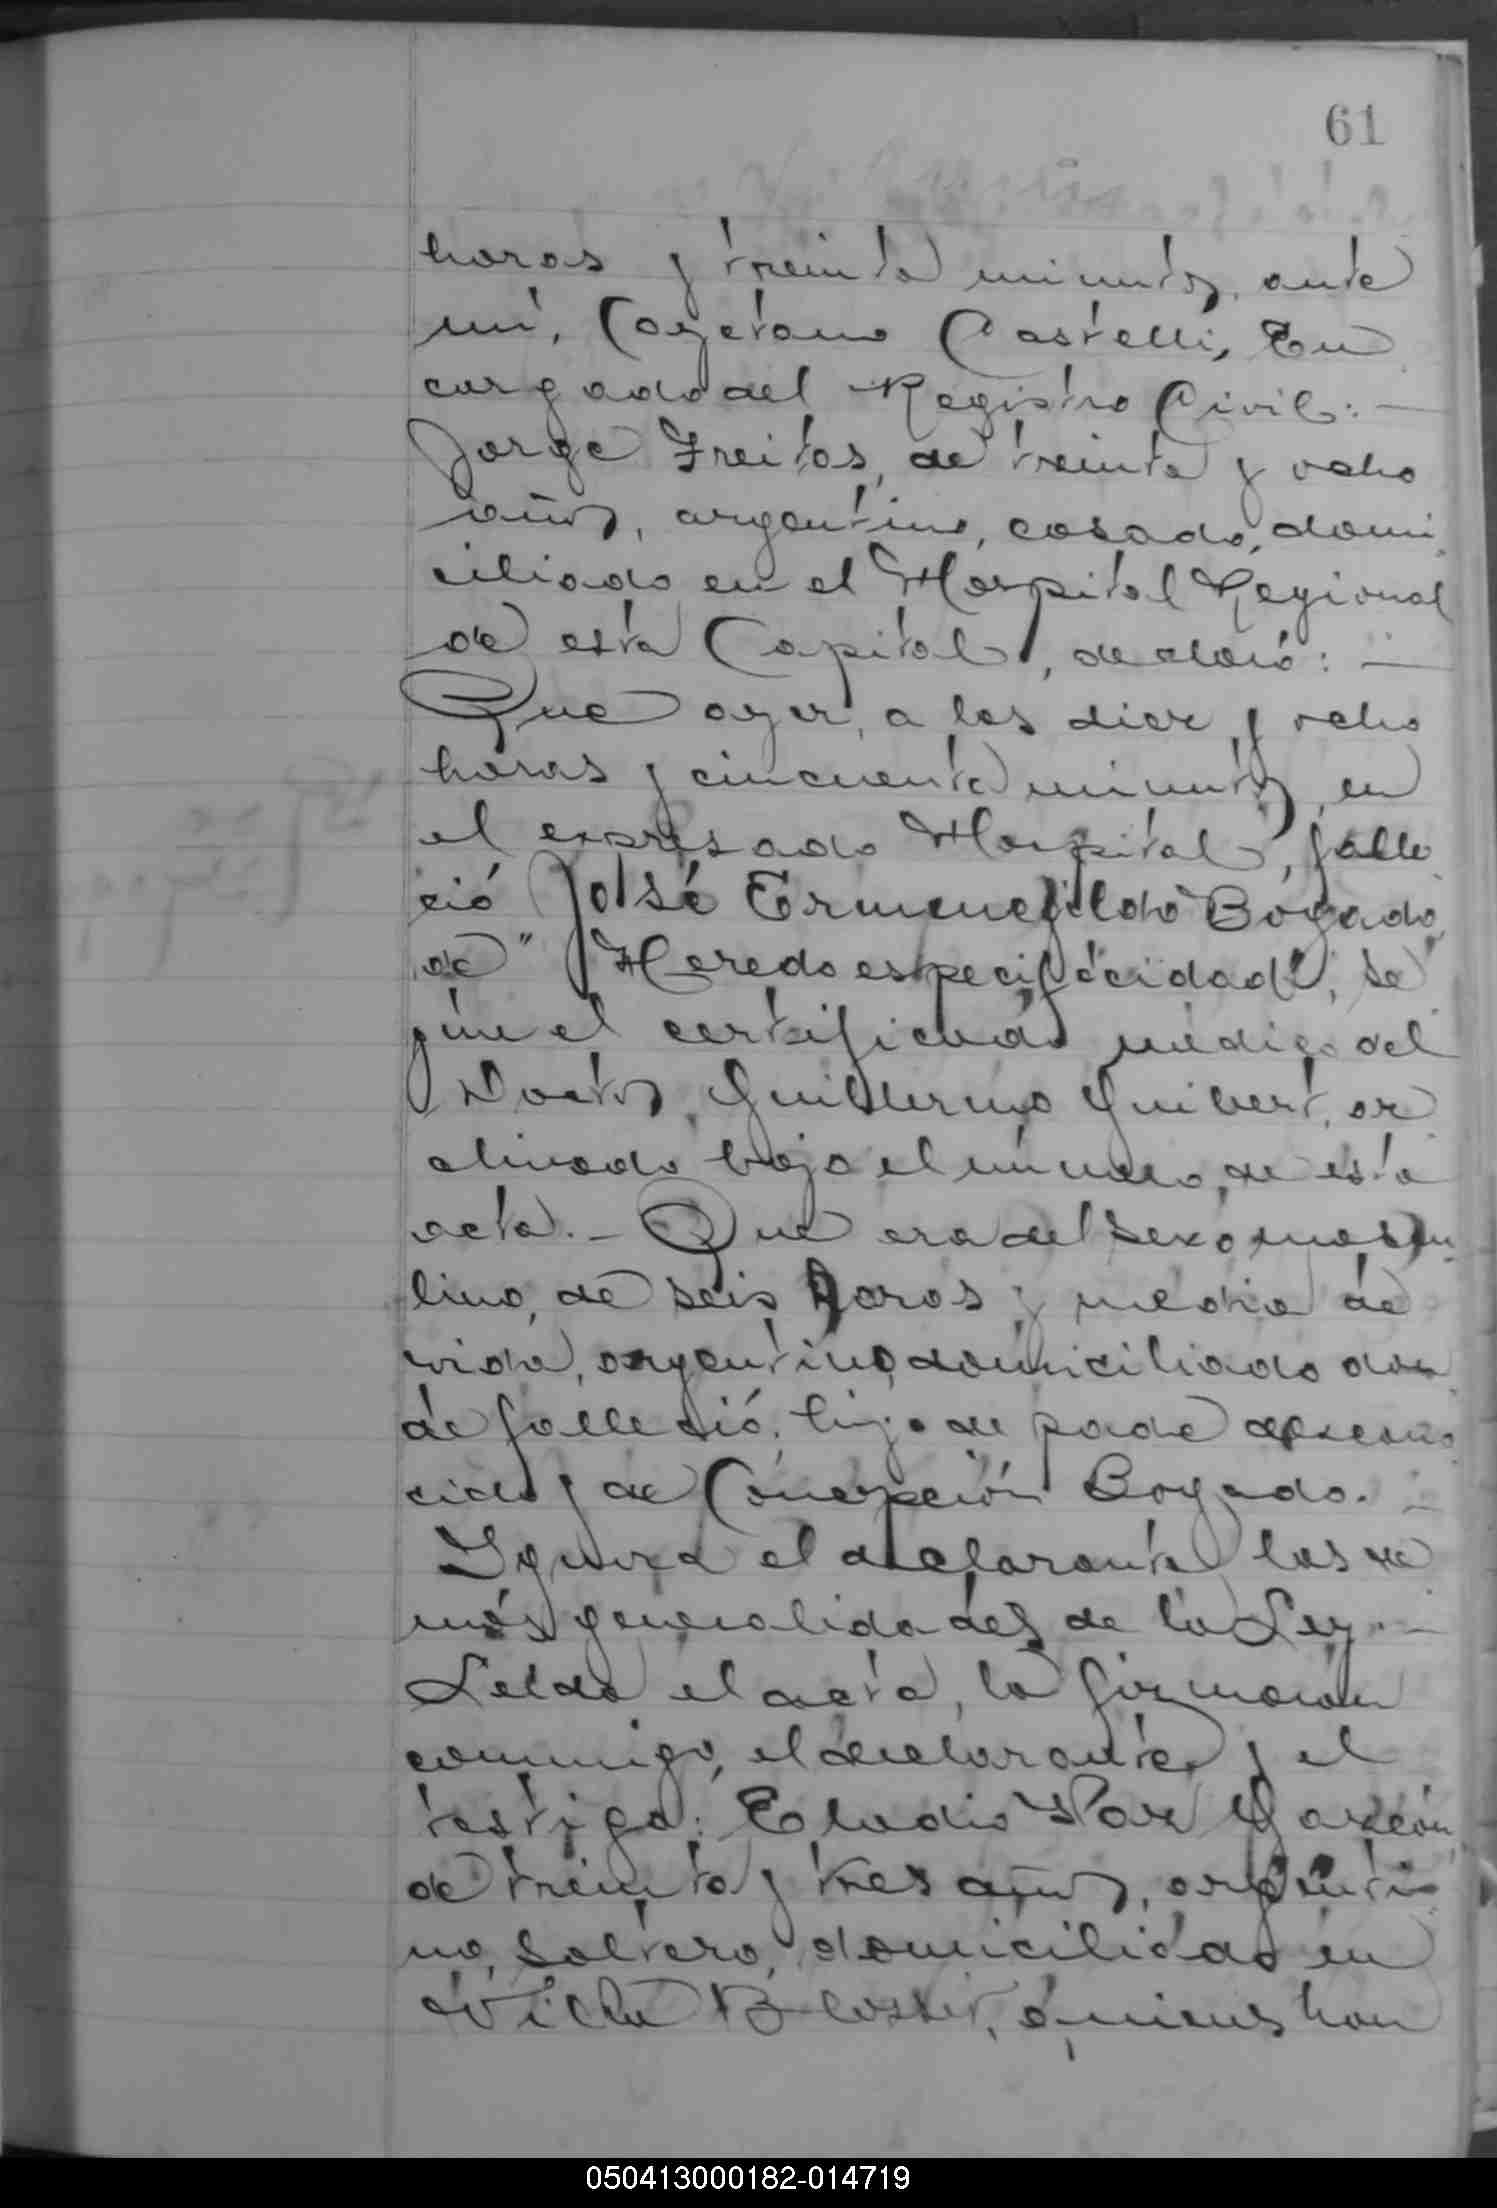 61
horas y treinta minutos, ante
mi, Cayetano Castelli, En
cargado del Registro Civil: —
Jorge Freitas, de treinta y ocho
años, argentino, casado, domi
ciliado en el Hospital Regional
de esta Capital, declaró: —
Que ayer, a las diez y ocho
horas y cincuenta minutos, en
el expresado Hospital, falle
ció José Ermenegildo Bogado
de "Heredoespecificidad", se
gún el certificado médico del
Doctor Guillermo Quibert, ar
chivado bajo el número de esta
acta. — Que era del sexo mascu
lino, de seis horas y media de
vida, argentino, domiciliado don
de falleció; hijo de padre descono
cido y de Concepción Bogado. —
Ignora el declarante las de
más generalidades de la Ley. —
Leída el acta, la firmaron
conmigo, el declarante y el
testigo: Eladio Paz Garzón,
de treinta y tres años, argenti
no, soltero, domiciliado en
Villa quienes han
050413000182-014719